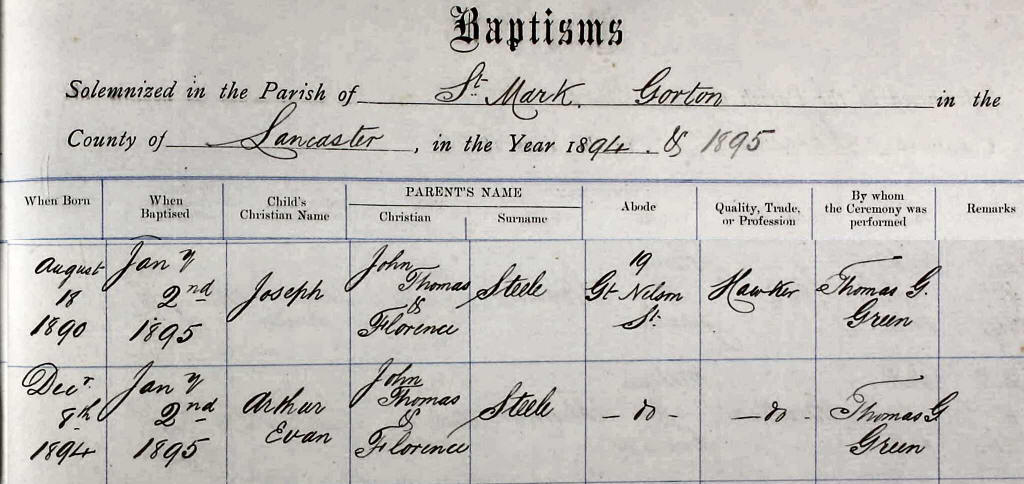 Baptisms
Solemnized in the Parish of St Mark. Gorton in the
County of Lancaster, in the Year 1894. & 1895
When Born
When Baptised
Child's Christian Name
PARENT'S NAME
Christian
Surname
Abode
Quality, Trade, or Profession
By whom the Ceremony was performed
Remarks
August 18 1890
Jany 2nd 1895
Joseph
John Thomas & Florence
Steele
19 Gt Nelson St.
Hawker
Thomas G. Green
Decr. 8th 1894
Jany 2nd 1895
Arthur Evan
John Thomas & Florence
Steele
- do -
- do -
Thomas G Green